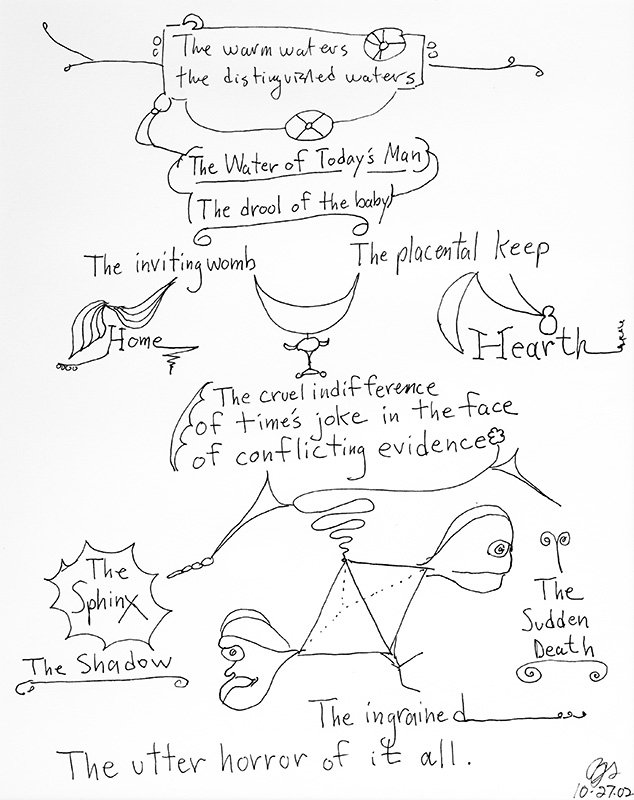 The warm waters
the distinguished waters
The Water of Today's Man
(The drool of the baby)
The inviting womb
The placental keep
Home
Hearth
The cruel indifference
of time's joke in the face
of conflicting evidence
The
Sphinx
The Shadow
The
Sudden
Death
The ingrained
The utter horror of it all.
10·27·02